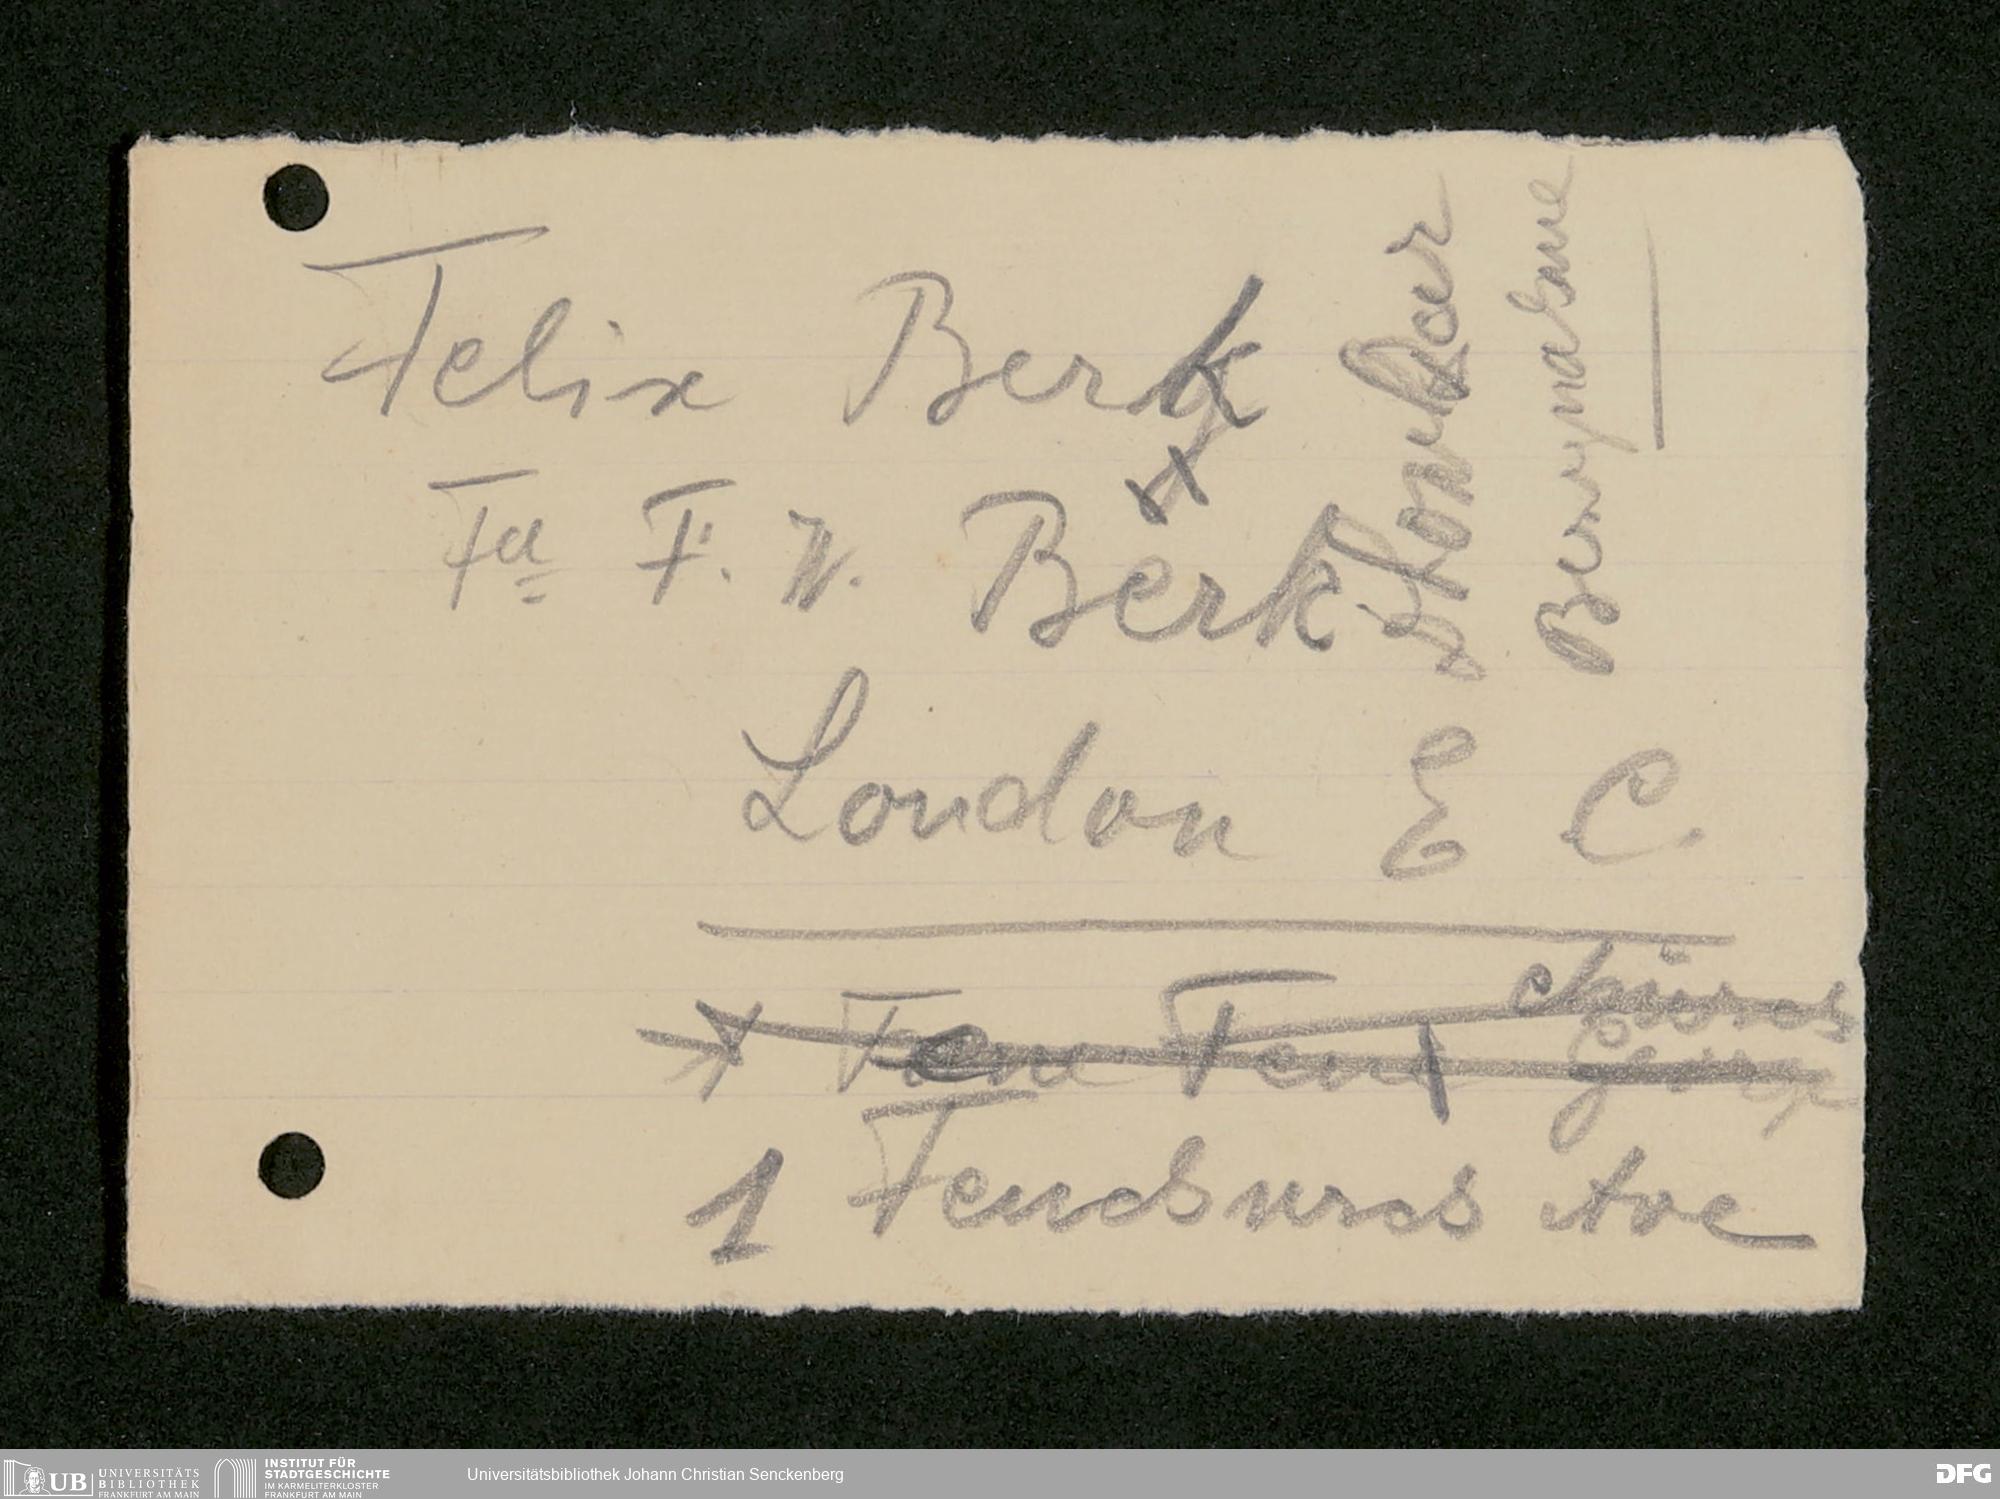 Felix Berk
Fa F. W. Berk
London E C.
church
Fene Fent
1 Fenchurch Ave
UB UNIVERSITÄTS
BIBLIOTHEK
FRANKFURT AM MAIN
INSTITUT FÜR
STADTGESCHICHTE
IM KARMELITERKLOSTER
FRANKFURT AM MAIN
Universitätsbibliothek Johann Christian Senckenberg
DFG